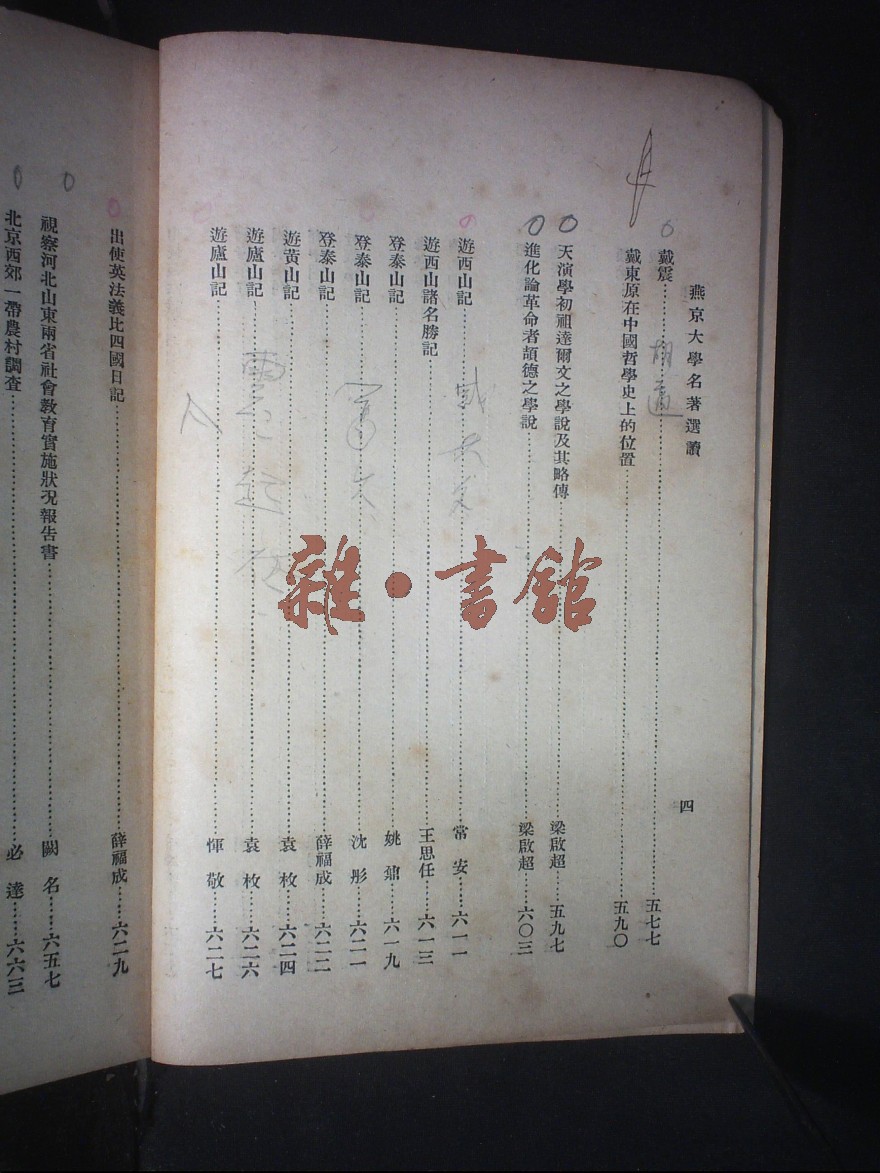 燕京大學名著選讀 四
戴震 胡適 五七七
戴東原在中國哲學史上的位置 五九〇
天演學初祖達爾文之學說及其略傳 梁啟超 五九七
進化論革命者頡德之學說 梁啟超 六〇三
遊西山記 常安 六一一
遊西山諸名勝記 王思任 六一三
登泰山記 姚鼐 六一九
登泰山記 沈彤 六二一
登泰山記 薛福成 六二二
遊黃山記 袁枚 六二四
遊廬山記 袁枚 六二六
遊廬山記 惲敬 六二七
出使英法義比四國日記 薛福成 六二九
視察河北山東兩省社會教育實施狀况報告書 闕名 六五七
北京西郊一帶農村調查 必達 六六三
雜·書館